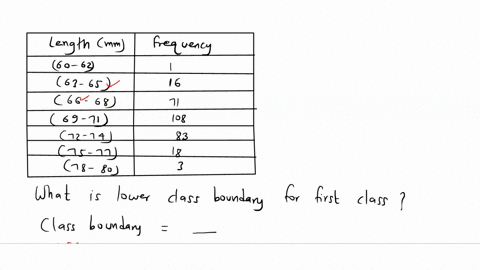 Length (mm) frequency
(60-62) 1
(63-65) 16
(66-68) 71
(69-71) 108
(72-74) 83
(75-77) 18
(78-80) 3
What is lower class boundary for first class ?
Class boundary = __